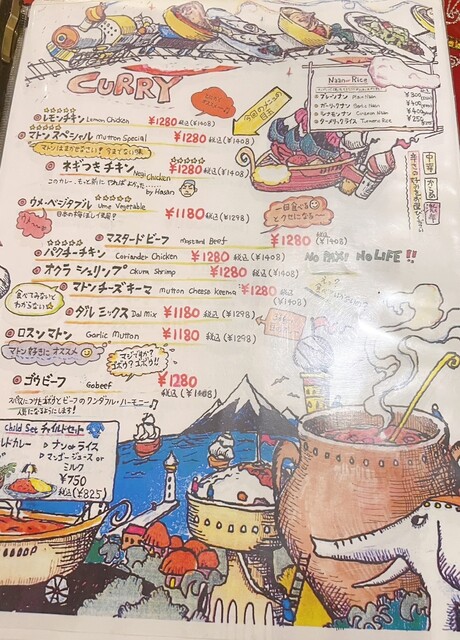 CURRY
レモンチキン Lemon Chicken ¥1280 税込(¥1408)
マトンスペシャル Mutton Special ¥1280 税込(¥1408)
今回のメニューの目玉
ネギつきチキン Negi Chicken ¥1280 税込(¥1408)
このカレー、もっと前にやればよかった…… by Hasan
ウメ・ベジタブル Ume Vegetable ¥1180 税込(¥1298)
一回食べるとクセになる〜
マスタードビーフ Mustard Beef ¥1280 税込(¥1408)
パクチーチキン Coriander Chicken ¥1280 税込(¥1408)
NO PAXI NO LIFE!!
オクラシュリンプ Okura Shrimp ¥1280 税込(¥1408)
マトンチーズキーマ Mutton Cheese Keema ¥1280 税込(¥1408)
食べてみないとわからない☆
ダルミックス Dal Mix ¥1180 税込(¥1298)
ロスンマトン Garlic Mutton ¥1180 税込(¥1298)
マトン好きにオススメ
マジですか?ゴボウ?ゴボウ!!
ゴウビーフ Gobeef ¥1280 税込(¥1408)
Naan・Rice
プレーンナン Plain Naan ¥300
ガーリックナン Garlic Naan ¥400
シナモンナン Cinamon Naan ¥400
ターメリックライス Tumeric Rice ¥250
Child Set チャイルドセット
▷ナンorライス
▷マンゴージュース or ミルク
¥750
税込(¥825)